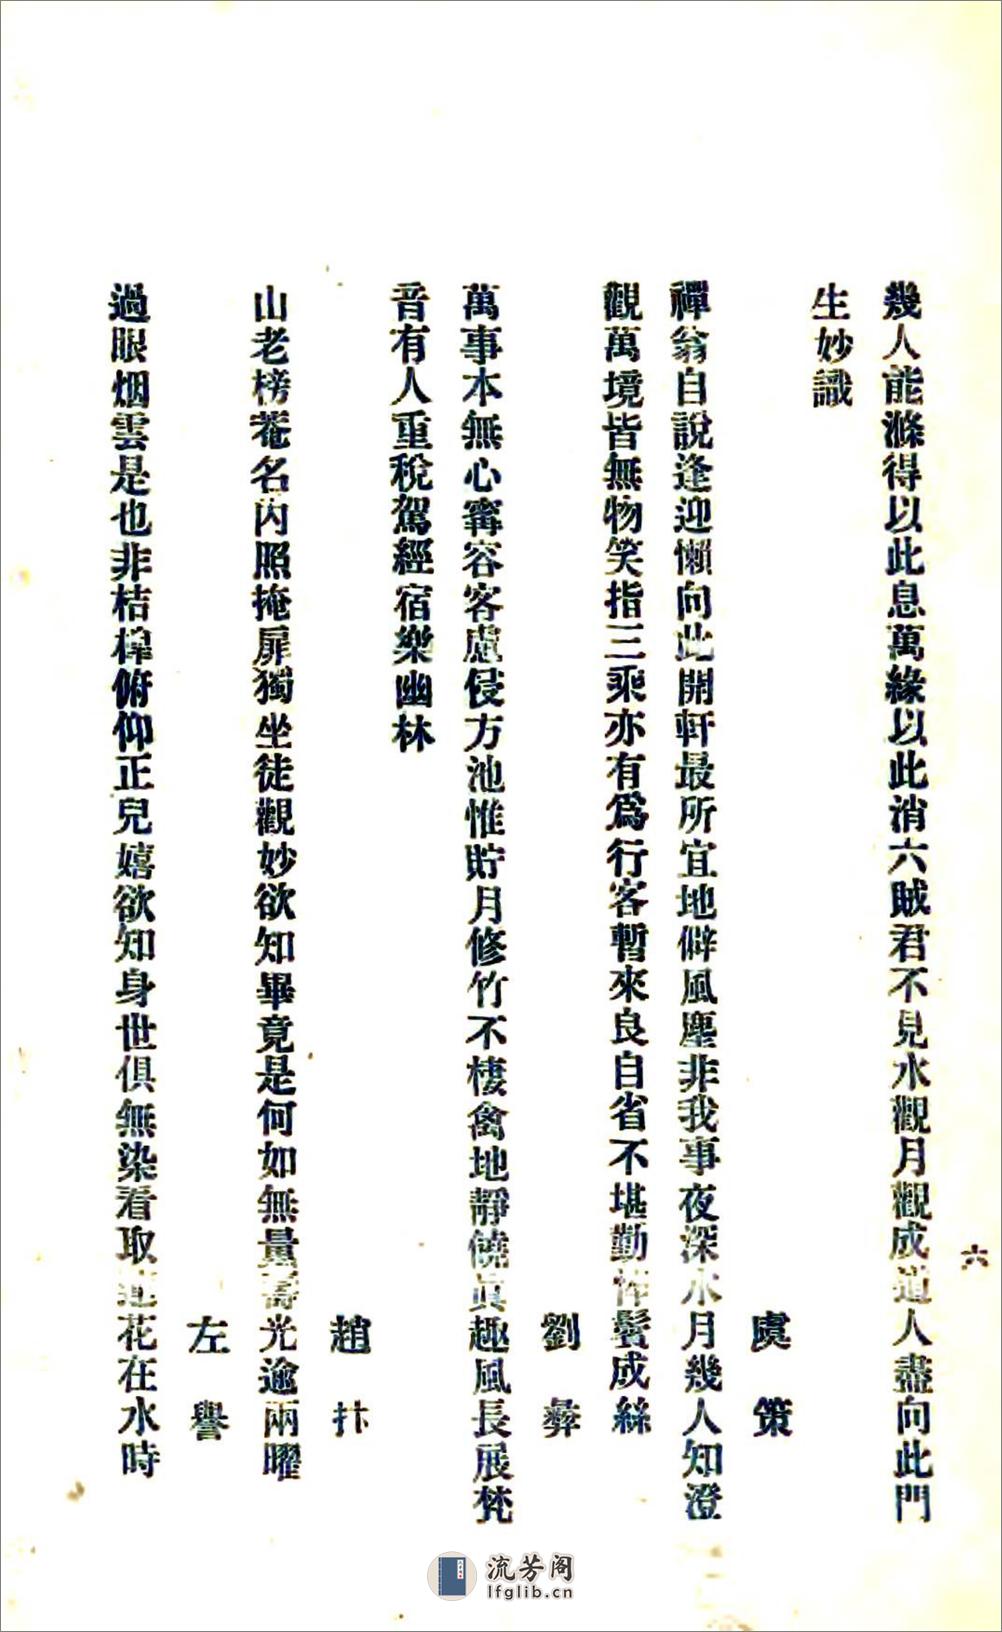 六
幾人能滌得以此息萬緣以此消六賊君不見水觀月觀成道人盡向此門
生妙識
虞策
禪翁自說逢迎懶向此開軒最所宜地僻風塵非我事夜深水月幾人知澄
觀萬境皆無物笑指三乘亦有爲行客暫來良自省不堪勤悴鬢成絲
劉彝
萬事本無心寗容客慮侵方池惟貯月修竹不棲禽地靜饒眞趣風長展梵
音有人重稅駕經宿樂幽林
趙抃
山老榜菴名內照掩扉獨坐徒觀妙欲知畢竟是何如無量壽光逾兩曜
左譽
過眼烟雲是也非桔槹俯仰正兒嬉欲知身世俱無染看取蓮花在水時
流芳阁
lfglib.cn